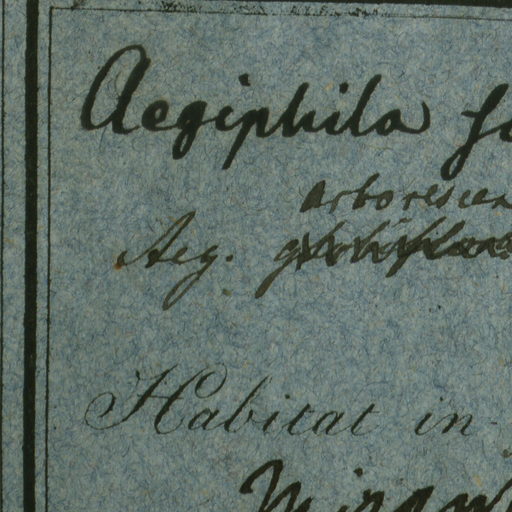 Aegiphila
arborescen
Aeg.
Habitat in